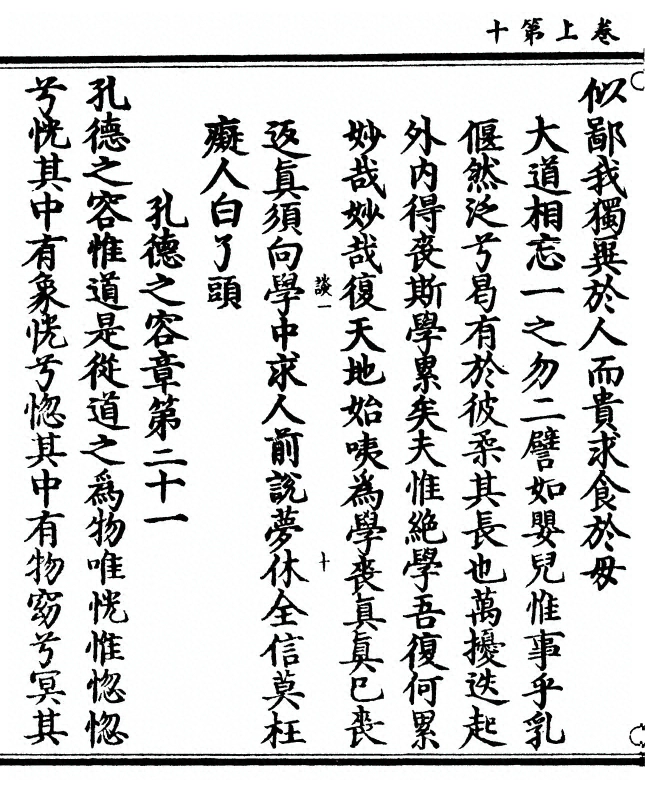 十第上卷
似鄙我獨異於人而貴求食於母
大道相忘一之勿二譬如嬰兒惟事乎乳
偃然泛兮曷有於彼柔其長也萬擾迭起
外内得喪斯學累矣夫惟絶學吾復何累
妙哉妙哉復天地始咦為學喪真真已喪
談一
十
返真須向學中求人前說夢休全信莫枉
癡人白了頭
孔德之容章第二十一
孔德之容惟道是從道之爲物唯恍惟惚惚
兮恍其中有象恍兮惚其中有物窈兮冥其